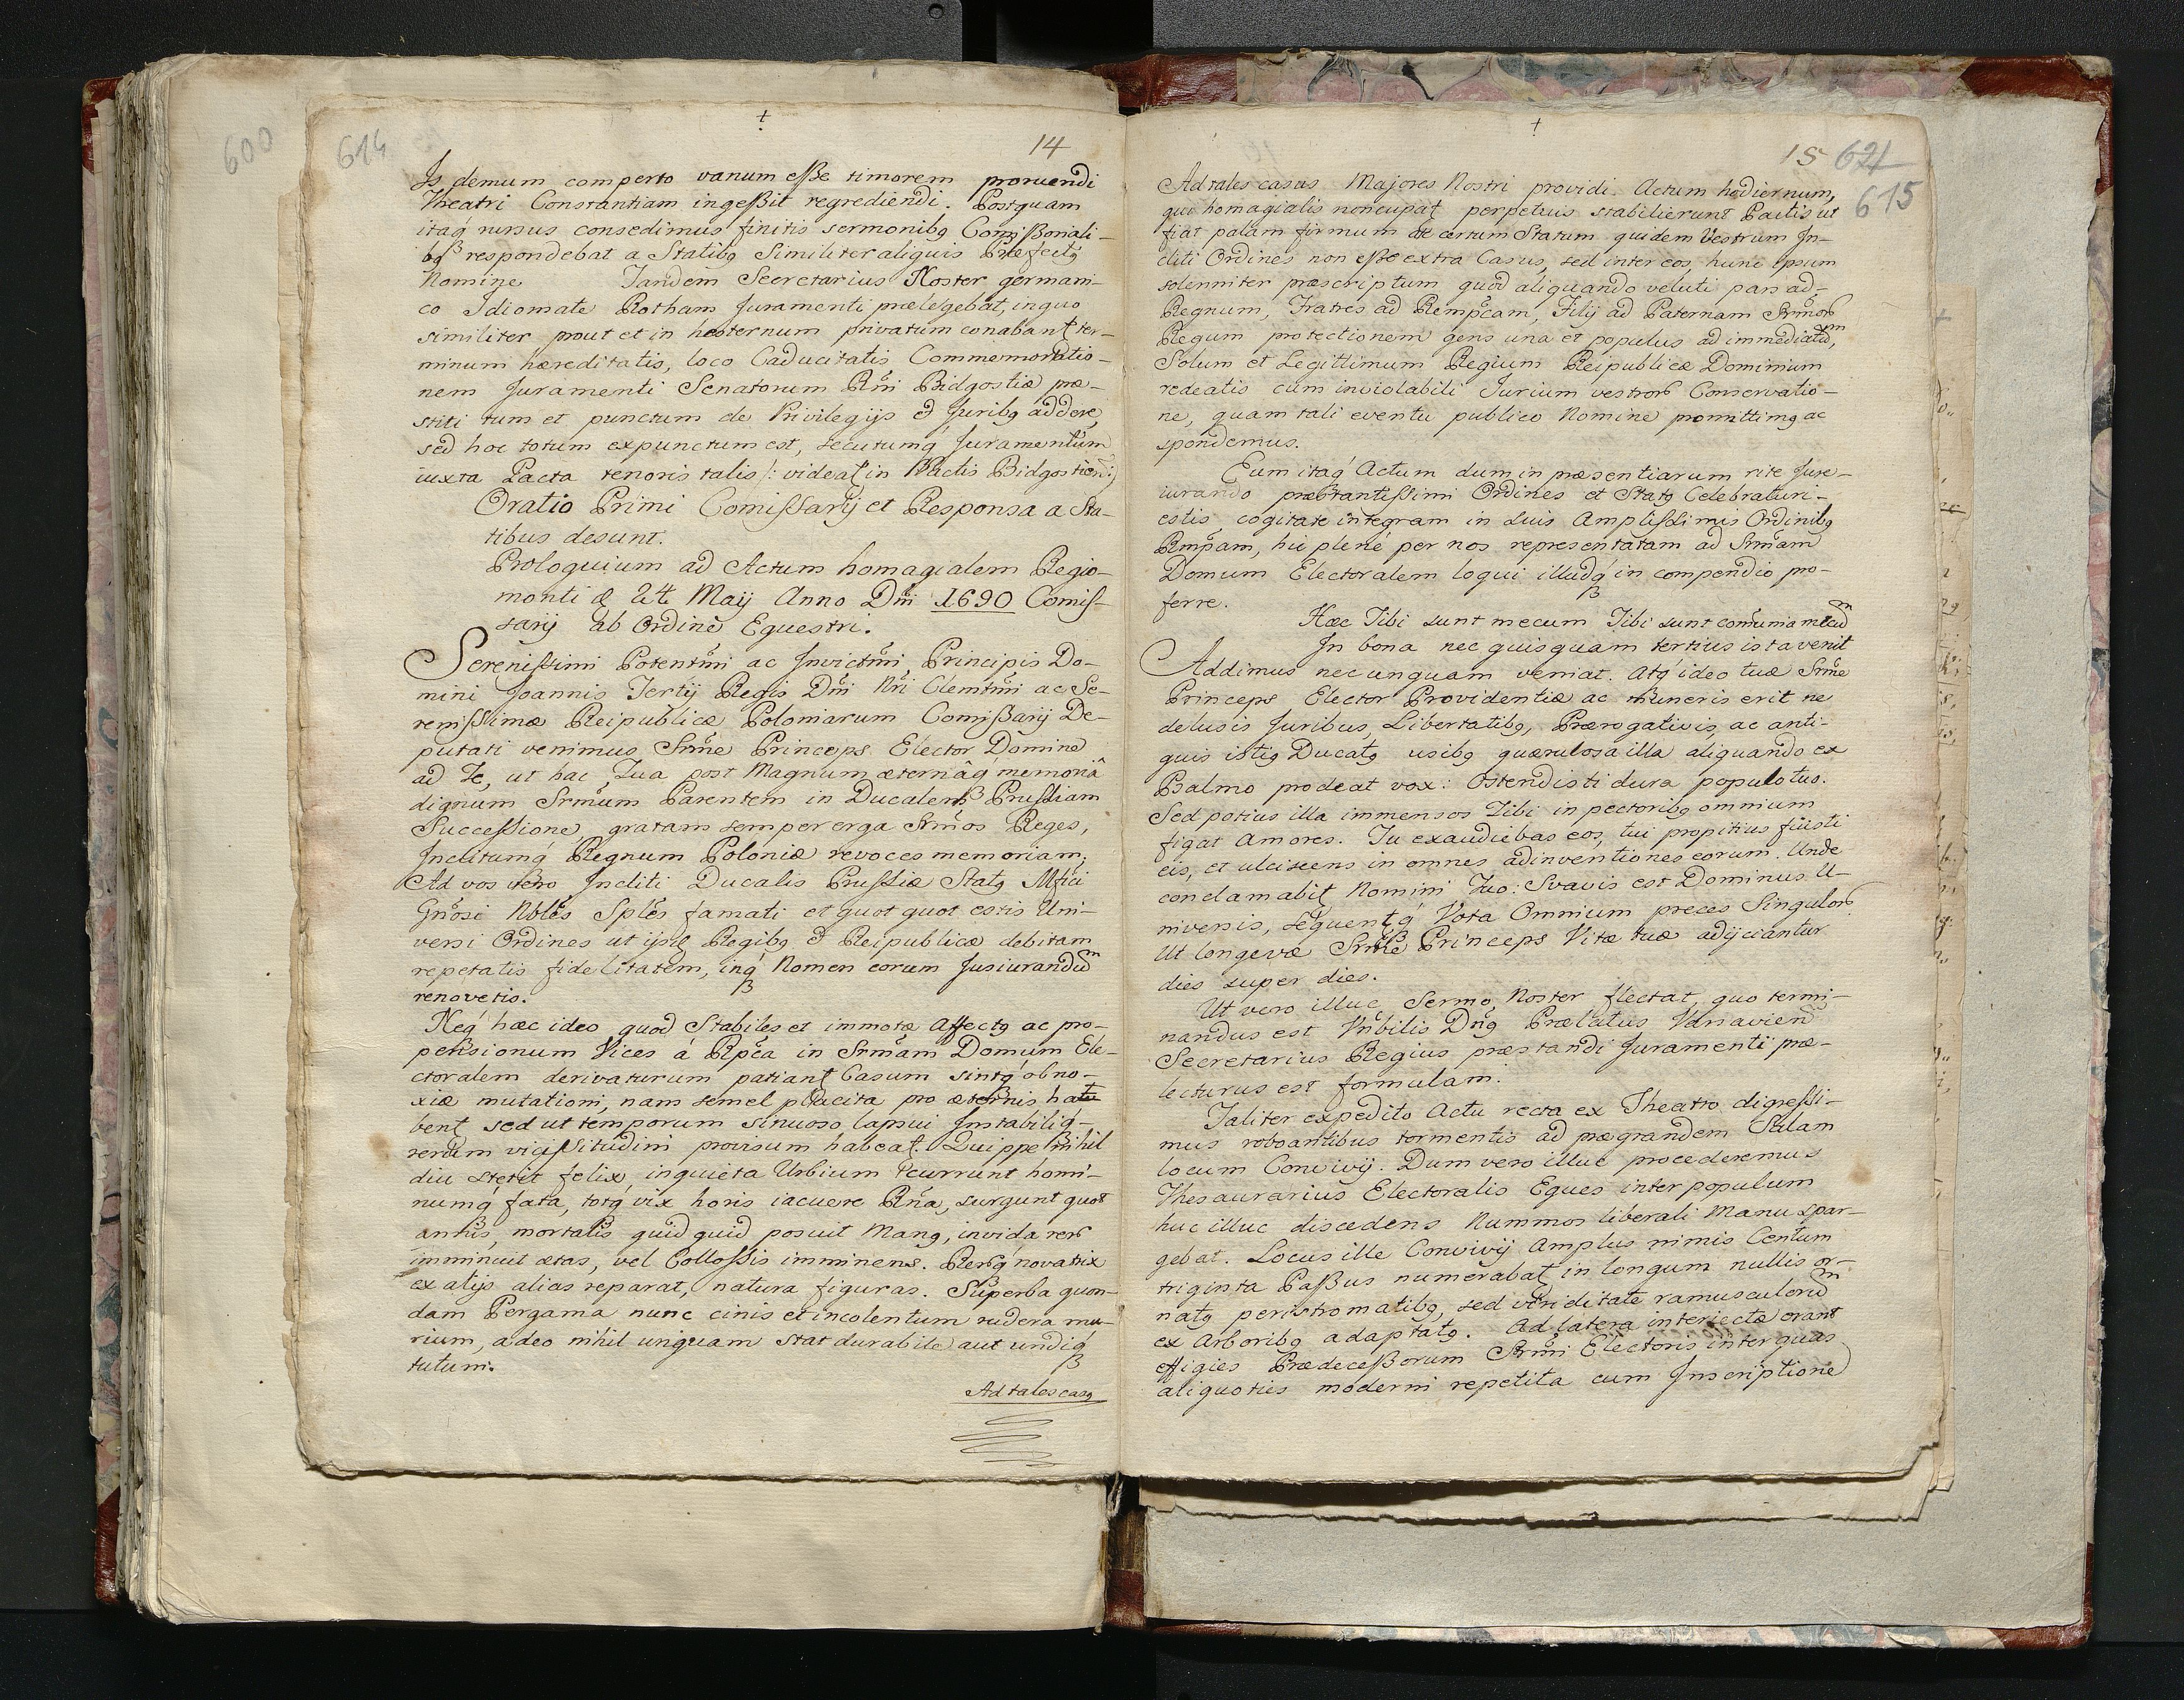 600
614
+
14
Is demum comperto vanum esse timorem proruendi
Theatri Constantiam ingeßit regrediendi. Postquam
itaq́ rursus consedimus finitis sermonibꝫ Comißoriali-
bꝫ respondebat a Statibꝫ Similiter aliquis Præfectꝫ
Nomine Tandem Secretarius Noster germani-
co Idiomate Rotham Juramenti prælegebat, in quo
similiter prout et in hesternum privatim conabant ter-
minum hæreditatis, loco Caducitatis Commemoratio-
nem Juramenti Senatorum Rni Bidgostiæ præ-
stiti tum et punctum de Privilegijs & Juribꝫ addere,
sed hoc totum expunctum est, secutumq́ Juramentum
iuxta Pacta tenoris talis /: videat in Pactis Bidgostien:/
Oratio Primi Comißarij et Responsa a Sta-
tibus desunt.
Prologuium ad Actum homagialem Regio-
monti d 24 Maij Anno Dni 1690 Comiß-
sarij ab Ordine Equestri.
Serenißimi Potentmi ac Invictmi, Principis Do-
mini Joannis Tertij Regis Dni Nri Clemtmi ac Se-
renißimæ Reipublicæ Poloniarum Comißarij De-
putati venimus Srme Princeps Elector Domine
ad Te, ut hac Tua post Magnum æternâq́ memoriâ
dignum Srmum Parentem in Ducalem Prußiam
Succeßione, gratam semper erga Srmos Reges,
Inclitumq́ Regnum Poloniæ revoces memoriam,
Ad vos vero Incliti Ducalis Prußiæ Statꝫ Mfici
Gnosi Nbles Sples famati et quot quot estis Uni-
versi Ordines ut ijsd Regibꝫ & Reipublicæ debitam
repetatis fidelitatem, inq́ Nomen eorum Jusiurandum
renovetis.
Neq́ hæc ideo quod Stabiles et immotæ affectꝫ ac pro-
pensionum Vices á Rpca in Srmam Domum Ele-
ctoralem derivaturum patiant Casum sintq́ obno-
xiæ mutationi, nam semel placita pro æternis ha
bent sed ut temporum sinuoso lapsui Instabiliq́-
rerum vicißitudini provisum habeat. Quippe nihil
diu stetit felix, inquieta Urbium currunt homi-
numq́ fata, totq́ vix horis iacuere Rna, surgunt quot
annis, mortalis quid quid posuit Manꝫ, invida rerum
imminuit ætas, vel Colloßis imminens. Rerumq́ novatrix
ex alijs alias reparat, natura figuras. Superba quon-
dam Pergama nunc cinis et incolentum rudera mu-
rium, adeo nihil unquam stat durabile aut undiq́
tutum.
Ad tales casꝫ
+
15 621
615
Ad tales casus Majores Nostri providi Actum hodiernum,
qui homagialis noncupat perpetuis stabilierunt Pactis ut
fiat palam firmum et certum Statum quidem Vestrum In-
cliti Ordines non eße extra Casus, sed inter eos, hunc ipsum
solenniter præscriptum quod aliquando veluti pars ad-
Regnum, Fratres ad Rempcam, Filij ad Paternam Srmorum
Regum protectionem gens una et populus ad immediatum,
Solum et Legittimum Regium Reipublicæ Dominium
redeatis cum inviolabili Jurium vestrorum Conservatio-
ne, quam tali eventu publico Nomine promittimꝫ ac
spondemus.
Eum itaq́ Actum dum in præsentiarum rite Jure-
iurando præstantißimi Ordines et Statꝫ Celebraturi-
estis, cogitate integram in suis Amplißimis Ordinibꝫ
Rmpam, hic plené per nos representatam ad Srmam
Domum Electoralem loqui illudq́ in compendio pro-
ferre.
Hæc Tibi sunt mecum Tibi sunt comunia mecum
In bona nec quisquam tertius ista venit
Addimus nec unquam veniat. Atq́ ideo tuæ Srme
Princeps Elector Providentiæ ac muneris erit ne
delusis Juribus, Libertatibꝫ, Prærogativis, ac anti-
quis istiꝫ Ducatꝫ usibꝫ quærulosa illa aliquando ex
Psalmo prodeat vox: Ostendisti dura populo tuo.
Sed potius illa immensos Tibi in pectoribꝫ omnium
figat Amores. Tu exaudiebas eos, tui propitius fuisti
eis, et ulciscens in omnes adinventiones eorum. Unde
conclamabit Nomini Tuo: Svavis est Dominus U-
niversis, sequentq́ Vota Omnium preces Singulorum
Ut longevæ Srme Princeps Vitæ tuæ adijciantur
dies super dies.
Ut vero illuc Sermo Noster flectat, quo termi-
nandus est Nobilis Dnꝫ Prælatus Varsavien
Secretarius Regius præstandi Juramenti præ-
lecturus est formulam.
Taliter expedito Actu recta ex Theatro digreßi-
mus roboantibus tormentis ad prægrandem Salam
locum Convivij. Dum vero illuc procederemus
Thesaurarius Electoralis Eques inter populum
huc illuc discedens Nummos liberali Manu spar-
gebat. Locus ille Convivij Amplus nimis Centum
triginta Paßus numerabat in longum nullis or-
natꝫ peristromatibꝫ, sed viriditate ramusculorum
ex Arboribꝫ adaptatꝫ. Ad latera interiectæ erant
effigies Prædeceßorum Srmi Electoris inter quas
aliquoties moderni repetita cum Inscriptione